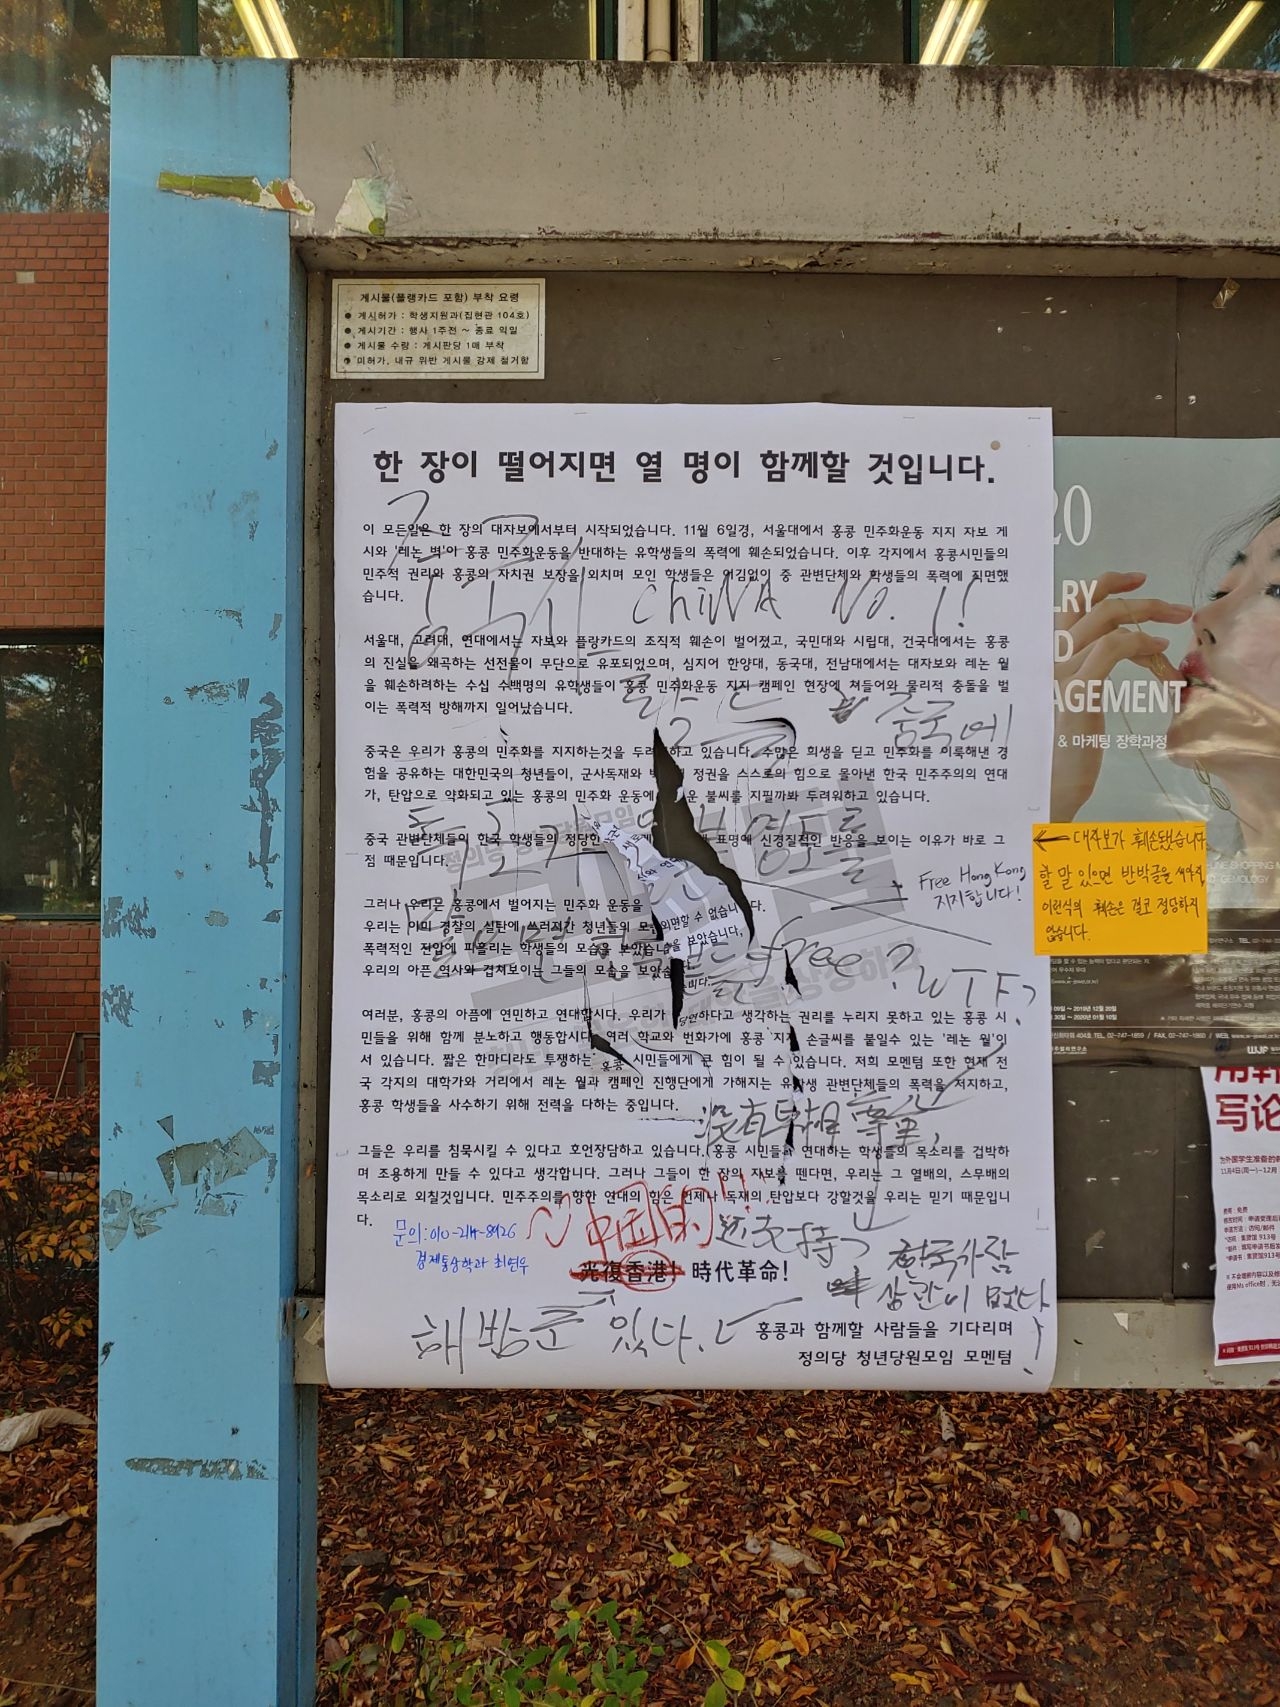 게시물(플랭카드 포함) 부착 요령
● 게시허가 : 학생지원과(집현관 104호)
● 게시기간 : 행사 1주전 ~ 종료 익일
● 게시물 수량 : 게시판당 1매 부착
● 미허가, 내규 위반 게시물 강제 철거함
한 장이 떨어지면 열 명이 함께할 것입니다.
이 모든일은 한 장의 대자보에서부터 시작되었습니다. 11월 6일경, 서울대에서 홍콩 민주화운동 지지 자보 게
시와 '레논 벽'이 홍콩 민주화운동을 반대하는 유학생들의 폭력에 훼손되었습니다. 이후 각지에서 홍콩시민들의
민주적 권리와 홍콩의 자치권 보장을 외치며 모인 학생들은 어김없이 중 관변단체와 학생들의 폭력에 직면했
습니다.
CHINA No.1!
서울대, 고려대, 연대에서는 자보와 플랑카드의 조직적 훼손이 벌어졌고, 국민대와 시립대, 건국대에서는 홍콩
의 진실을 왜곡하는 선전물이 무단으로 유포되었으며, 심지어 한양대, 동국대, 전남대에서는 대자보와 레논 월
을 훼손하려하는 수십 수백명의 유학생들이 홍콩 민주화운동 지지 캠페인 현장에 쳐들어와 물리적 충돌을 벌
이는 폭력적 방해까지 일어났습니다.
중국에
중국은 우리가 홍콩의 민주화를 지지하는것을 두려워하고 있습니다. 수많은 희생을 딛고 민주화를 이룩해낸 경
험을 공유하는 대한민국의 청년들이, 군사독재와 정권을 스스로의 힘으로 몰아낸 한국 민주주의의 연대
가, 탄압으로 약화되고 있는 홍콩의 민주화 운동에 운 불씨를 지필까봐 두려워하고 있습니다.
중국 관변단체들이 한국 학생들의 정당한 표명에 신경질적인 반응을 보이는 이유가 바로 그
점 때문입니다.
Free Hong Kong
지지합니다!
그러나 우리는 홍콩에서 벌어지는 민주화 운동을 외면할 수 없습니다.
우리는 이미 경찰의 실탄에 쓰러지간 청년들의 모습을 보았습니다,
폭력적인 진압에 피흘리는 학생들의 모습을 보았습니다.
우리의 아픈 역사와 겹쳐보이는 그들의 모습을 보았습니다.
free? WTF?
여러분, 홍콩의 아픔에 연민하고 연대합시다. 우리가 당연하다고 생각하는 권리를 누리지 못하고 있는 홍콩 시
민들을 위해 함께 분노하고 행동합시다. 여러 학교와 번화가에 홍콩 지지 손글씨를 붙일수 있는 '레논 월'이
서 있습니다. 짧은 한마디라도 투쟁하는 홍콩 시민들에게 큰 힘이 될 수 있습니다. 저희 모멘텀 또한 현재 전
국 각지의 대학가와 거리에서 레논 월과 캠페인 진행단에게 가해지는 유학생 관변단체들의 폭력을 저지하고,
홍콩 학생들을 사수하기 위해 전력을 다하는 중입니다.
그들은 우리를 침묵시킬 수 있다고 호언장담하고 있습니다. 홍콩 시민들과 연대하는 학생들의 목소리를 겁박하
며 조용하게 만들 수 있다고 생각합니다. 그러나 그들이 한 장의 자보를 뗀다면, 우리는 그 열배의, 스무배의
목소리로 외칠것입니다. 민주주의를 향한 연대의 힘은 언제나 독재의 탄압보다 강할것을 우리는 믿기 때문입니
다.
中国的!!
还支持?
경제통상학과
光復香港! 時代革命!
한국사람
상관이 없다!
해방군 있다.
홍콩과 함께할 사람들을 기다리며
정의당 청년당원모임 모멘텀
← 대자보가 훼손됐습니다
할 말 있으면 반박글을 써야지
이런식의 훼손은 결코 정당하지
않습니다.
20
LRY
D
AGEMENT
& 마케팅 장학과정
写论